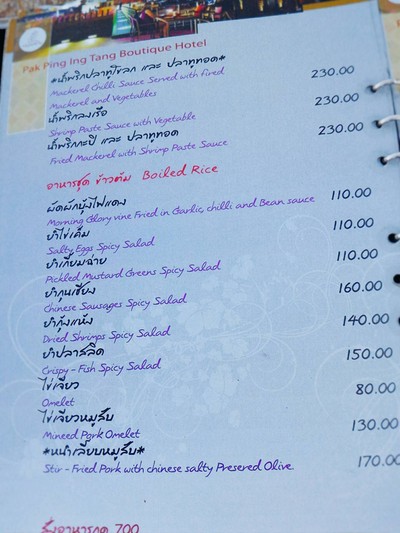 Pak Ping Ing Tang Boutique Hotel
*น้ำพริกปลาทูโขลก และ ปลาทูทอด*
Mackerel Chilli Sauce Served with fired 230.00
Mackerel and Vegetables
น้ำพริกลงเรือ 230.00
Shrimp Paste Sauce with Vegetable
น้ำพริกกะปิ และ ปลาทูทอด 230.00
Fried Mackerel with Shrimp Paste Sauce
อาหารชุด ข้าวต้ม Boiled Rice
ผัดผักบุ้งไฟแดง 110.00
Morning Glory vine Fried in Garlic, chilli and Bean sauce
ยำไข่เค็ม 110.00
Salty Eggs Spicy Salad
ยำเกี้ยมฉ่าย 110.00
Pickled Mustard Greens Spicy Salad
ยำกุนเชียง 160.00
Chinese Sausages Spicy Salad
ยำกุ้งแห้ง 140.00
Dried Shrimps Spicy Salad
ยำปลาสลิด 150.00
Crispy - Fish Spicy Salad
ไข่เจียว 80.00
Omelet
ไข่เจียวหมูสับ 130.00
Mineed Pork Omelet
*หนำเลี๊ยบหมูสับ* 170.00
Stir - Fried Pork with chinese salty Presered Olive
สั่งอาหารกด 700